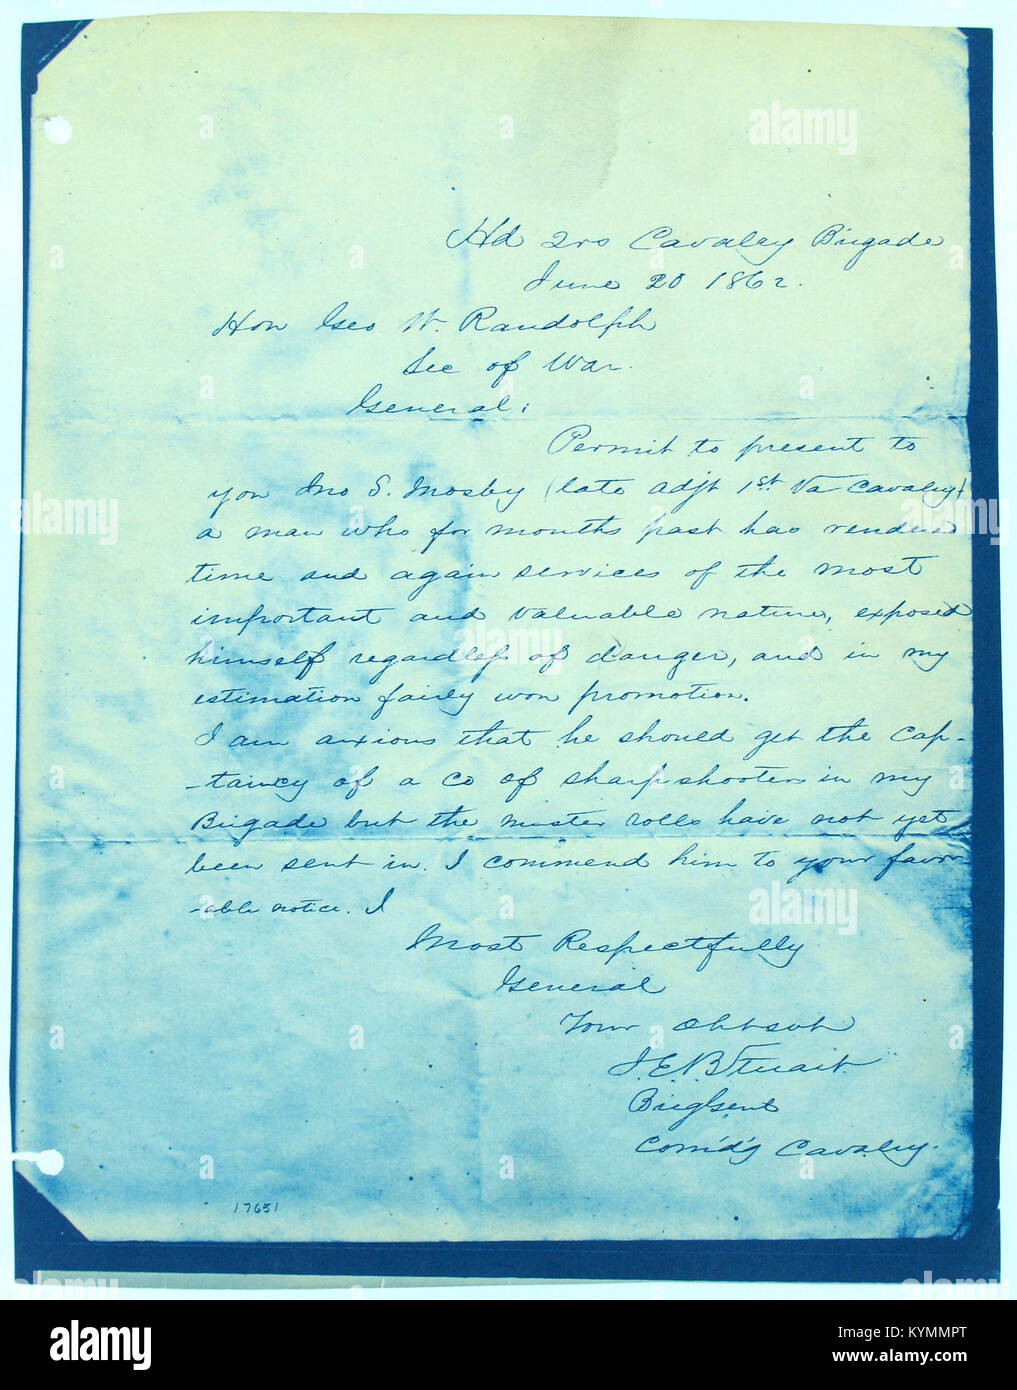 Hd Qrs Cavalry Brigade
June 20 1862.
Hon Geo W. Randolph
Sec of War.
General;
Permit to present to
you Jno S. Mosby (late adjt 1st Va Cavalry)
a man who for months past has rendered
time and again services of the most
important and valuable nature, exposed
himself regardless of danger, and in my
estimation fairly won promotion.
I am anxious that he should get the Cap-
-taincy of a Co of sharpshooters in my
Brigade but the muster rolls have not yet
been sent in. I commend him to your favor-
-able notice. I
Most Respectfully
General
Your Obt svt
J.E.B Stuart.
Brig Genl
Com'd'g Cavalry.
17651
alamy
Image ID: KYMMPT
www.alamy.com